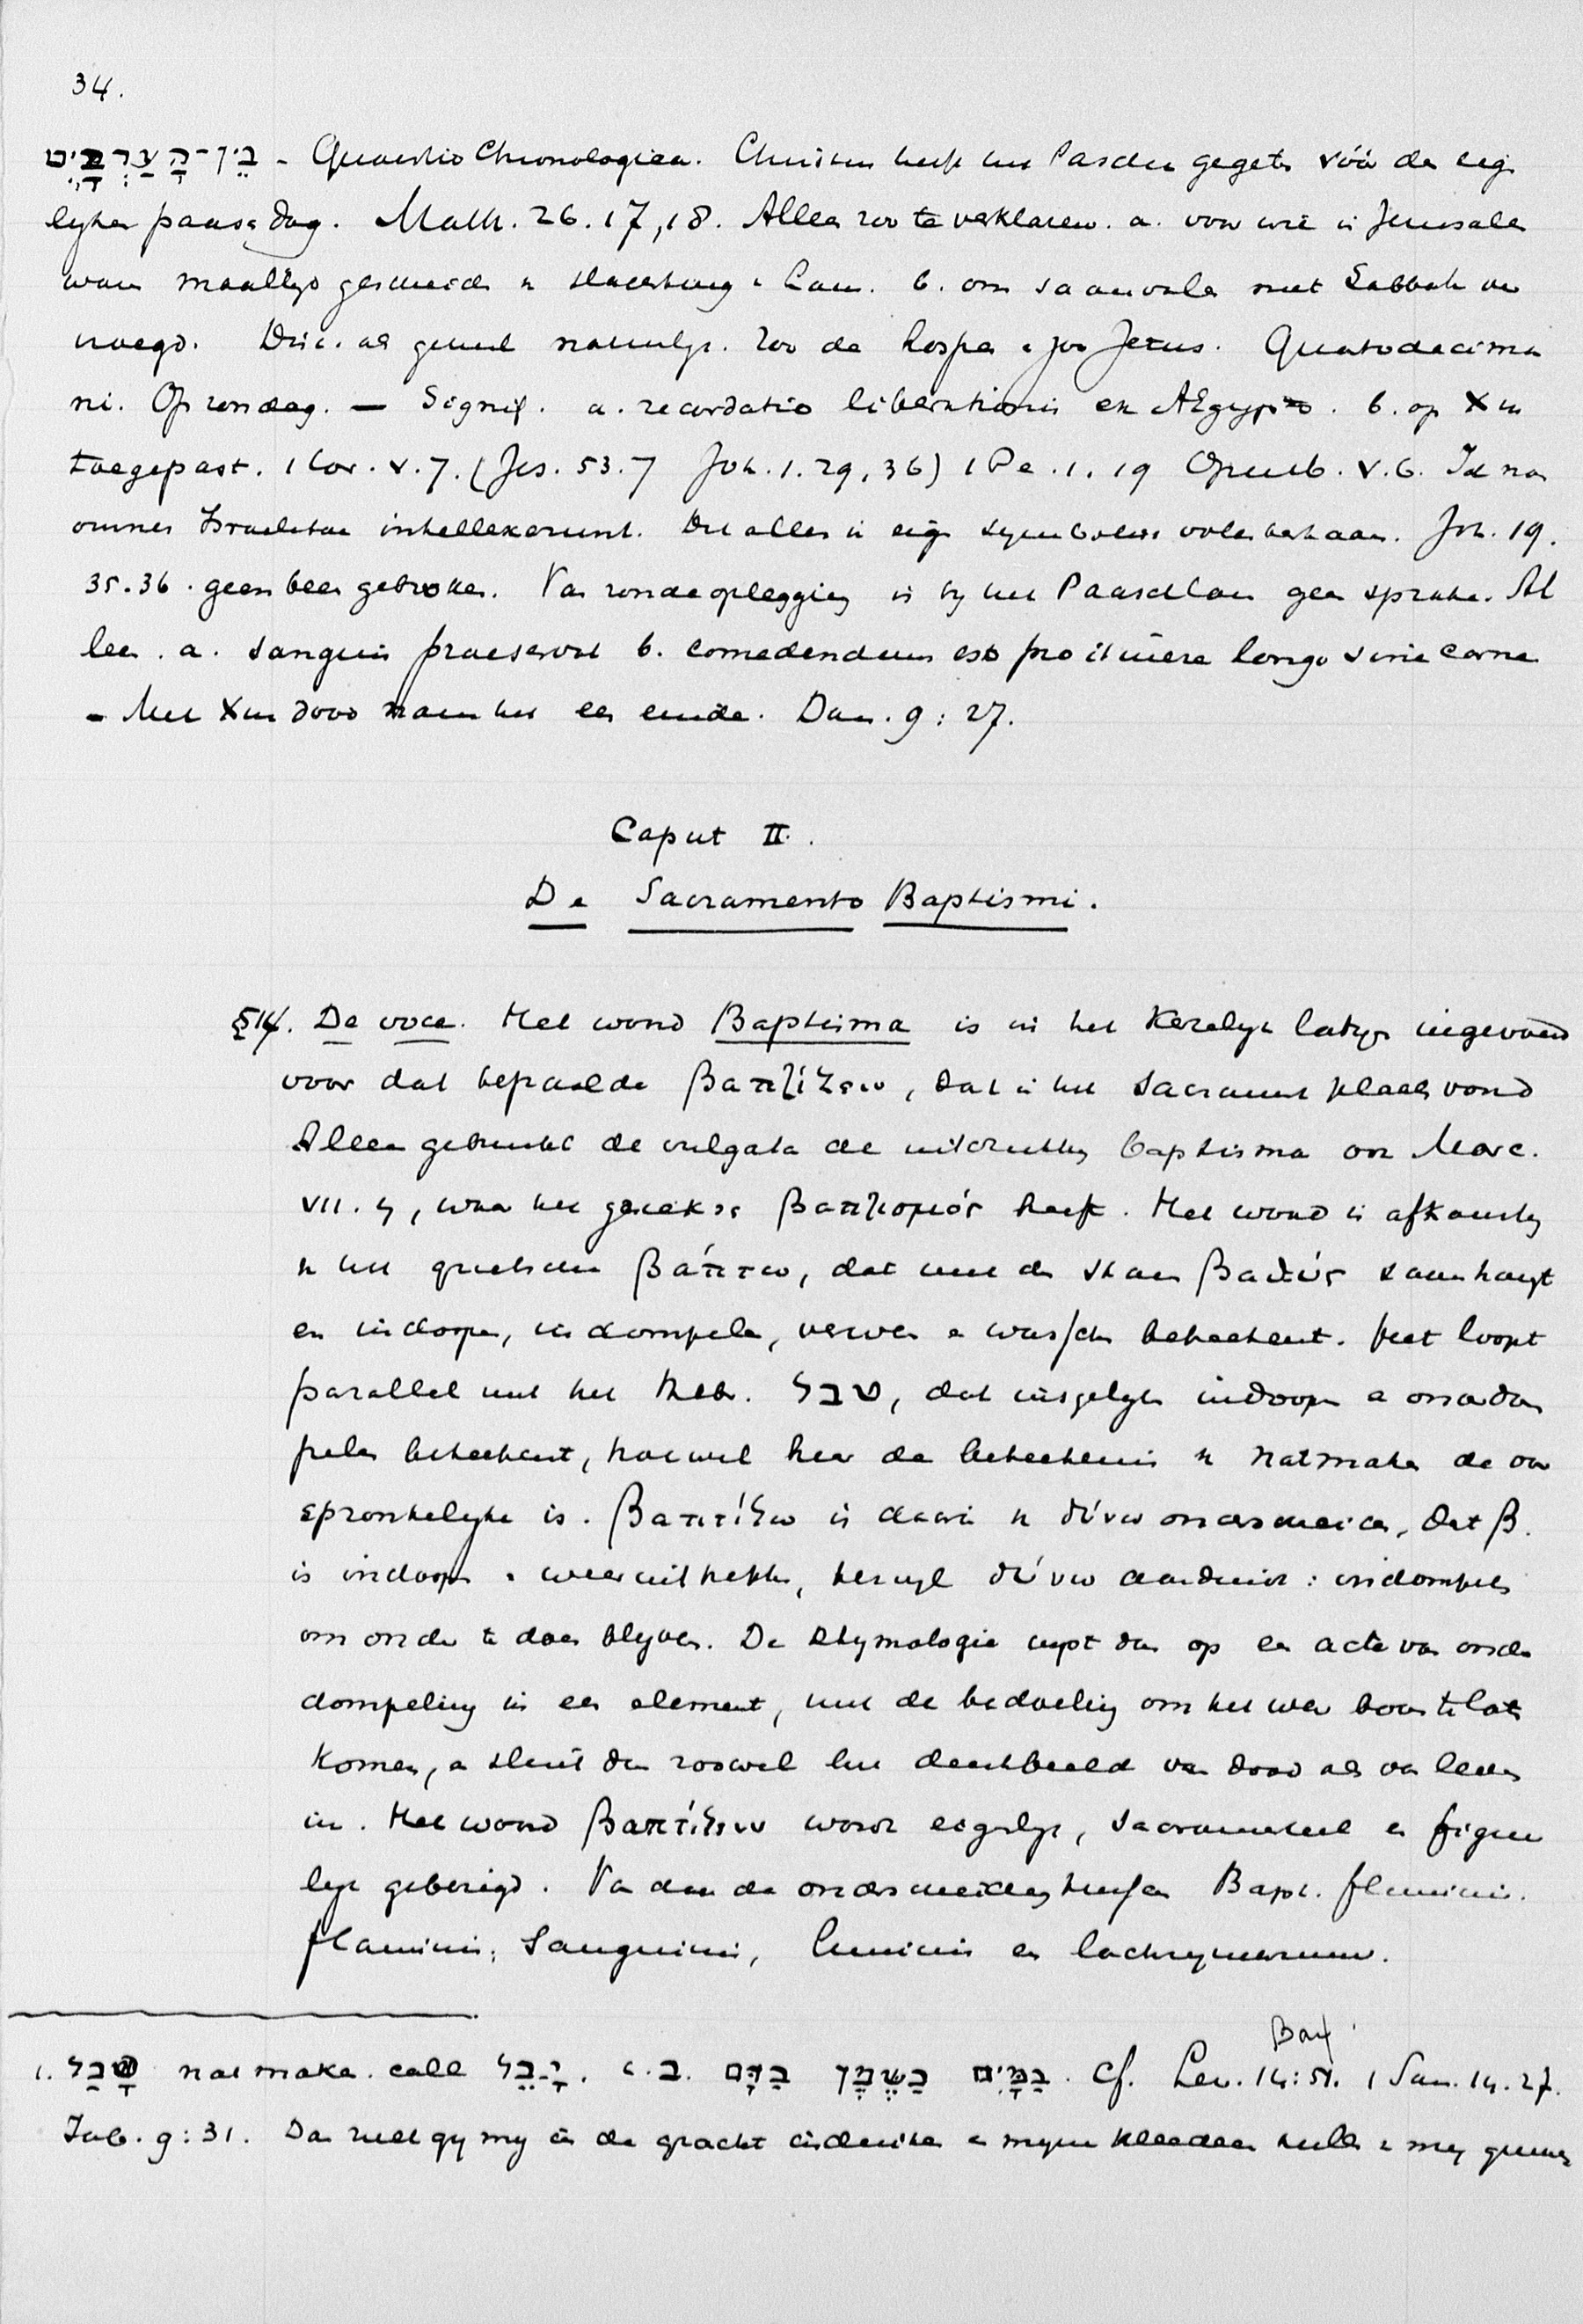 34.
בֵּין-הָעַרְבָּיִם - Quaestio Chronologica. Christus heeft het Pascha gegeten vóór de eig
lyken paasch dag. Matth. 26. 17, 18. Alleen zoo te verklaren. a. voor wie in Jerusalem
waren maaltyd gescheiden slachting Lam. b. om samenvallen met Sabbath ver
vroegd. Dric. als geheel natuurlijk. Zoo de hospes Jesus. Quartodecima
ni. Op zondag. — Signif. a. recordatio liberationis ex AEgypto. b. op X us
toegepast. 1 Cor. V. 7. (Jes. 53. 7 Joh. 1. 29, 36) 1 Pe. 1. 19 Openb. V. 6. Id non
omnes Israelitae intellexerunt. Dit alles is eig symbolisch op te vatten. Joh. 19.
35. 36. geen been gebroken. Van zonde oplegging is by het Paaschlam geen sprake. Al
leen. a. sanguis praeservat b. comedendum est pro itinere longo sine carne
- Met X us dood nam het een einde. Dan. 9: 27.
Caput II.
De Sacramento Baptismi.
§14. De voce. Het woord Baptisma is in het Kerkelyk latyn ingevoerd
voor dat bepaalde βαπτίζειν, dat in het Sacrament plaats vond
Alleen gebruikt de vulgata de uitdrukking baptisma ook Marc.
VII. 4, waar het grieksch βαπτισμός heeft. Het woord is afkomstig
v het grieksche βάπτω, dat met de stam βαθύς samenhangt
en indoopen, in dompelen, verven en wasschen beteekent. Het loopt
parallel met het Hebr. טבל, dat insgelyks indoopen en onderdom
pelen beteekent, hoewel hier de beteekenis v natmaken de oor
spronkelyke is. βαπτίζω is daarin v δύνω onderscheiden, dat β.
is indoopen en weer uittrekken, terwyl δύνω aanduidt: indompelen
om onder te doen blyven. De Etymologie wyst dus op een acte van onder
dompeling in een element, met de bedoeling om het weer boven te laten
komen, en sluit dus zoowel het denkbeeld van dood als van leven
in. Het woord βαπτίζειν wordt eigenlyk, sacramenteel en figuur
lyk gebezigd. Van daar de onderscheiding tusschen Bapt. fluminis.
flaminis, Sanguinis, luminis en lachrymarum.
Bax
1. טָבַל natmaken. בַּמַּיִם בַּשֶּׁמֶן בַּדָּם ב. Cf. Lev. 14: 51. 1 Sam. 14. 27.
Job. 9: 31. Dan zult gy my in de gracht induiken en myne kleederen zullen van my gruwen